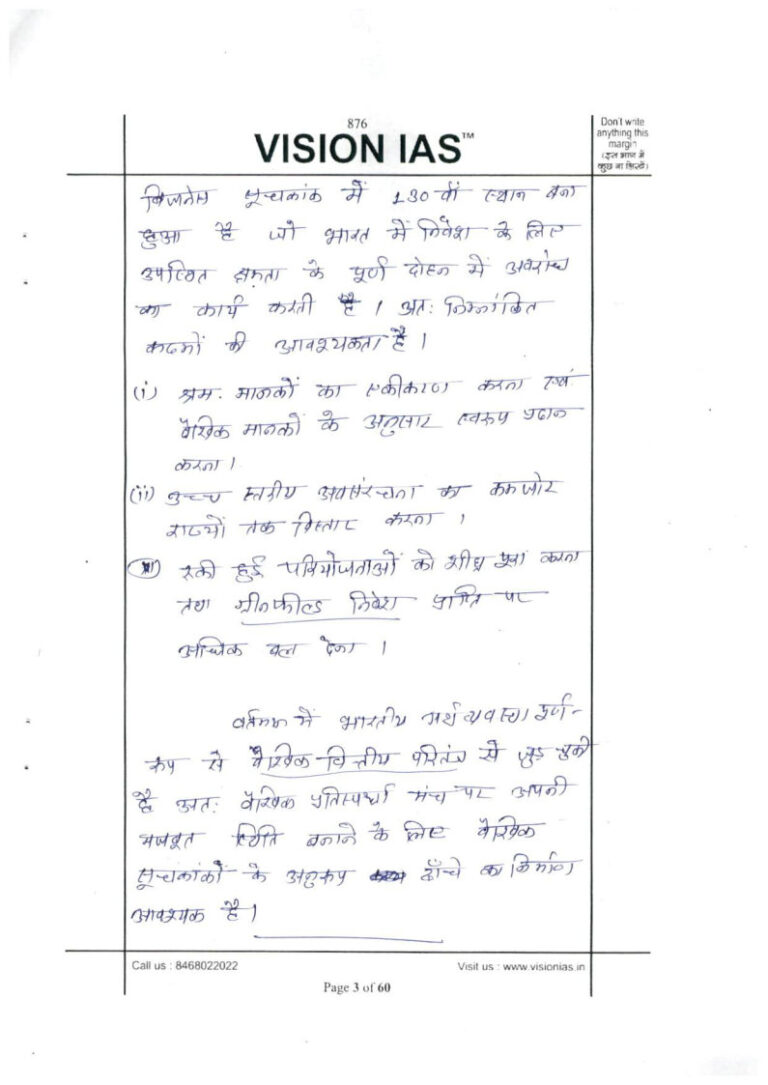 876
VISION IAS™
Don't write
anything this
margin
(इस भाग में
कुछ ना लिखें)
बिजनेस सूचकांक में 130 वाँ स्थान बना
हुआ है जो भारत में निवेश के लिए
उपस्थित क्षमता के पूर्ण दोहन में अवरोध
का कार्य करती है । अतः निम्नांकित
कदमों की आवश्यकता है ।
(i) श्रम मानकों का एकीकरण करना एवं
वैश्विक मानकों के अनुसार स्वरूप प्रदान
करना ।
(ii) उच्च स्तरीय अवसंरचना का कमजोर
राज्यों तक विस्तार करना ।
रुकी हुई परियोजनाओं को शीघ्र पूरा करना
तथा ग्रीनफील्ड निवेश प्राप्ति पर
अधिक बल देना ।
वर्तमान में भारतीय अर्थव्यवस्था पूर्ण-
रूप से वैश्विक वित्तीय परितंत्र से जुड़ चुकी
है अतः वैश्विक प्रतिस्पर्धा मंच पर अपनी
मजबूत स्थिति बनाने के लिए वैश्विक
सूचकांकों के अनुरूप ढाँचे का निर्माण
आवश्यक है ।
Call us : 8468022022
Visit us : www.visionias.in
Page 3 of 60